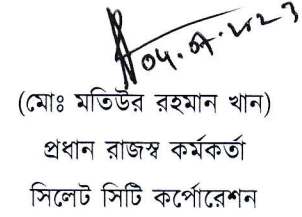 ০৪.০৭.২০২৩
(মোঃ মতিউর রহমান খান)
প্রধান রাজস্ব কর্মকর্তা
সিলেট সিটি কর্পোরেশন